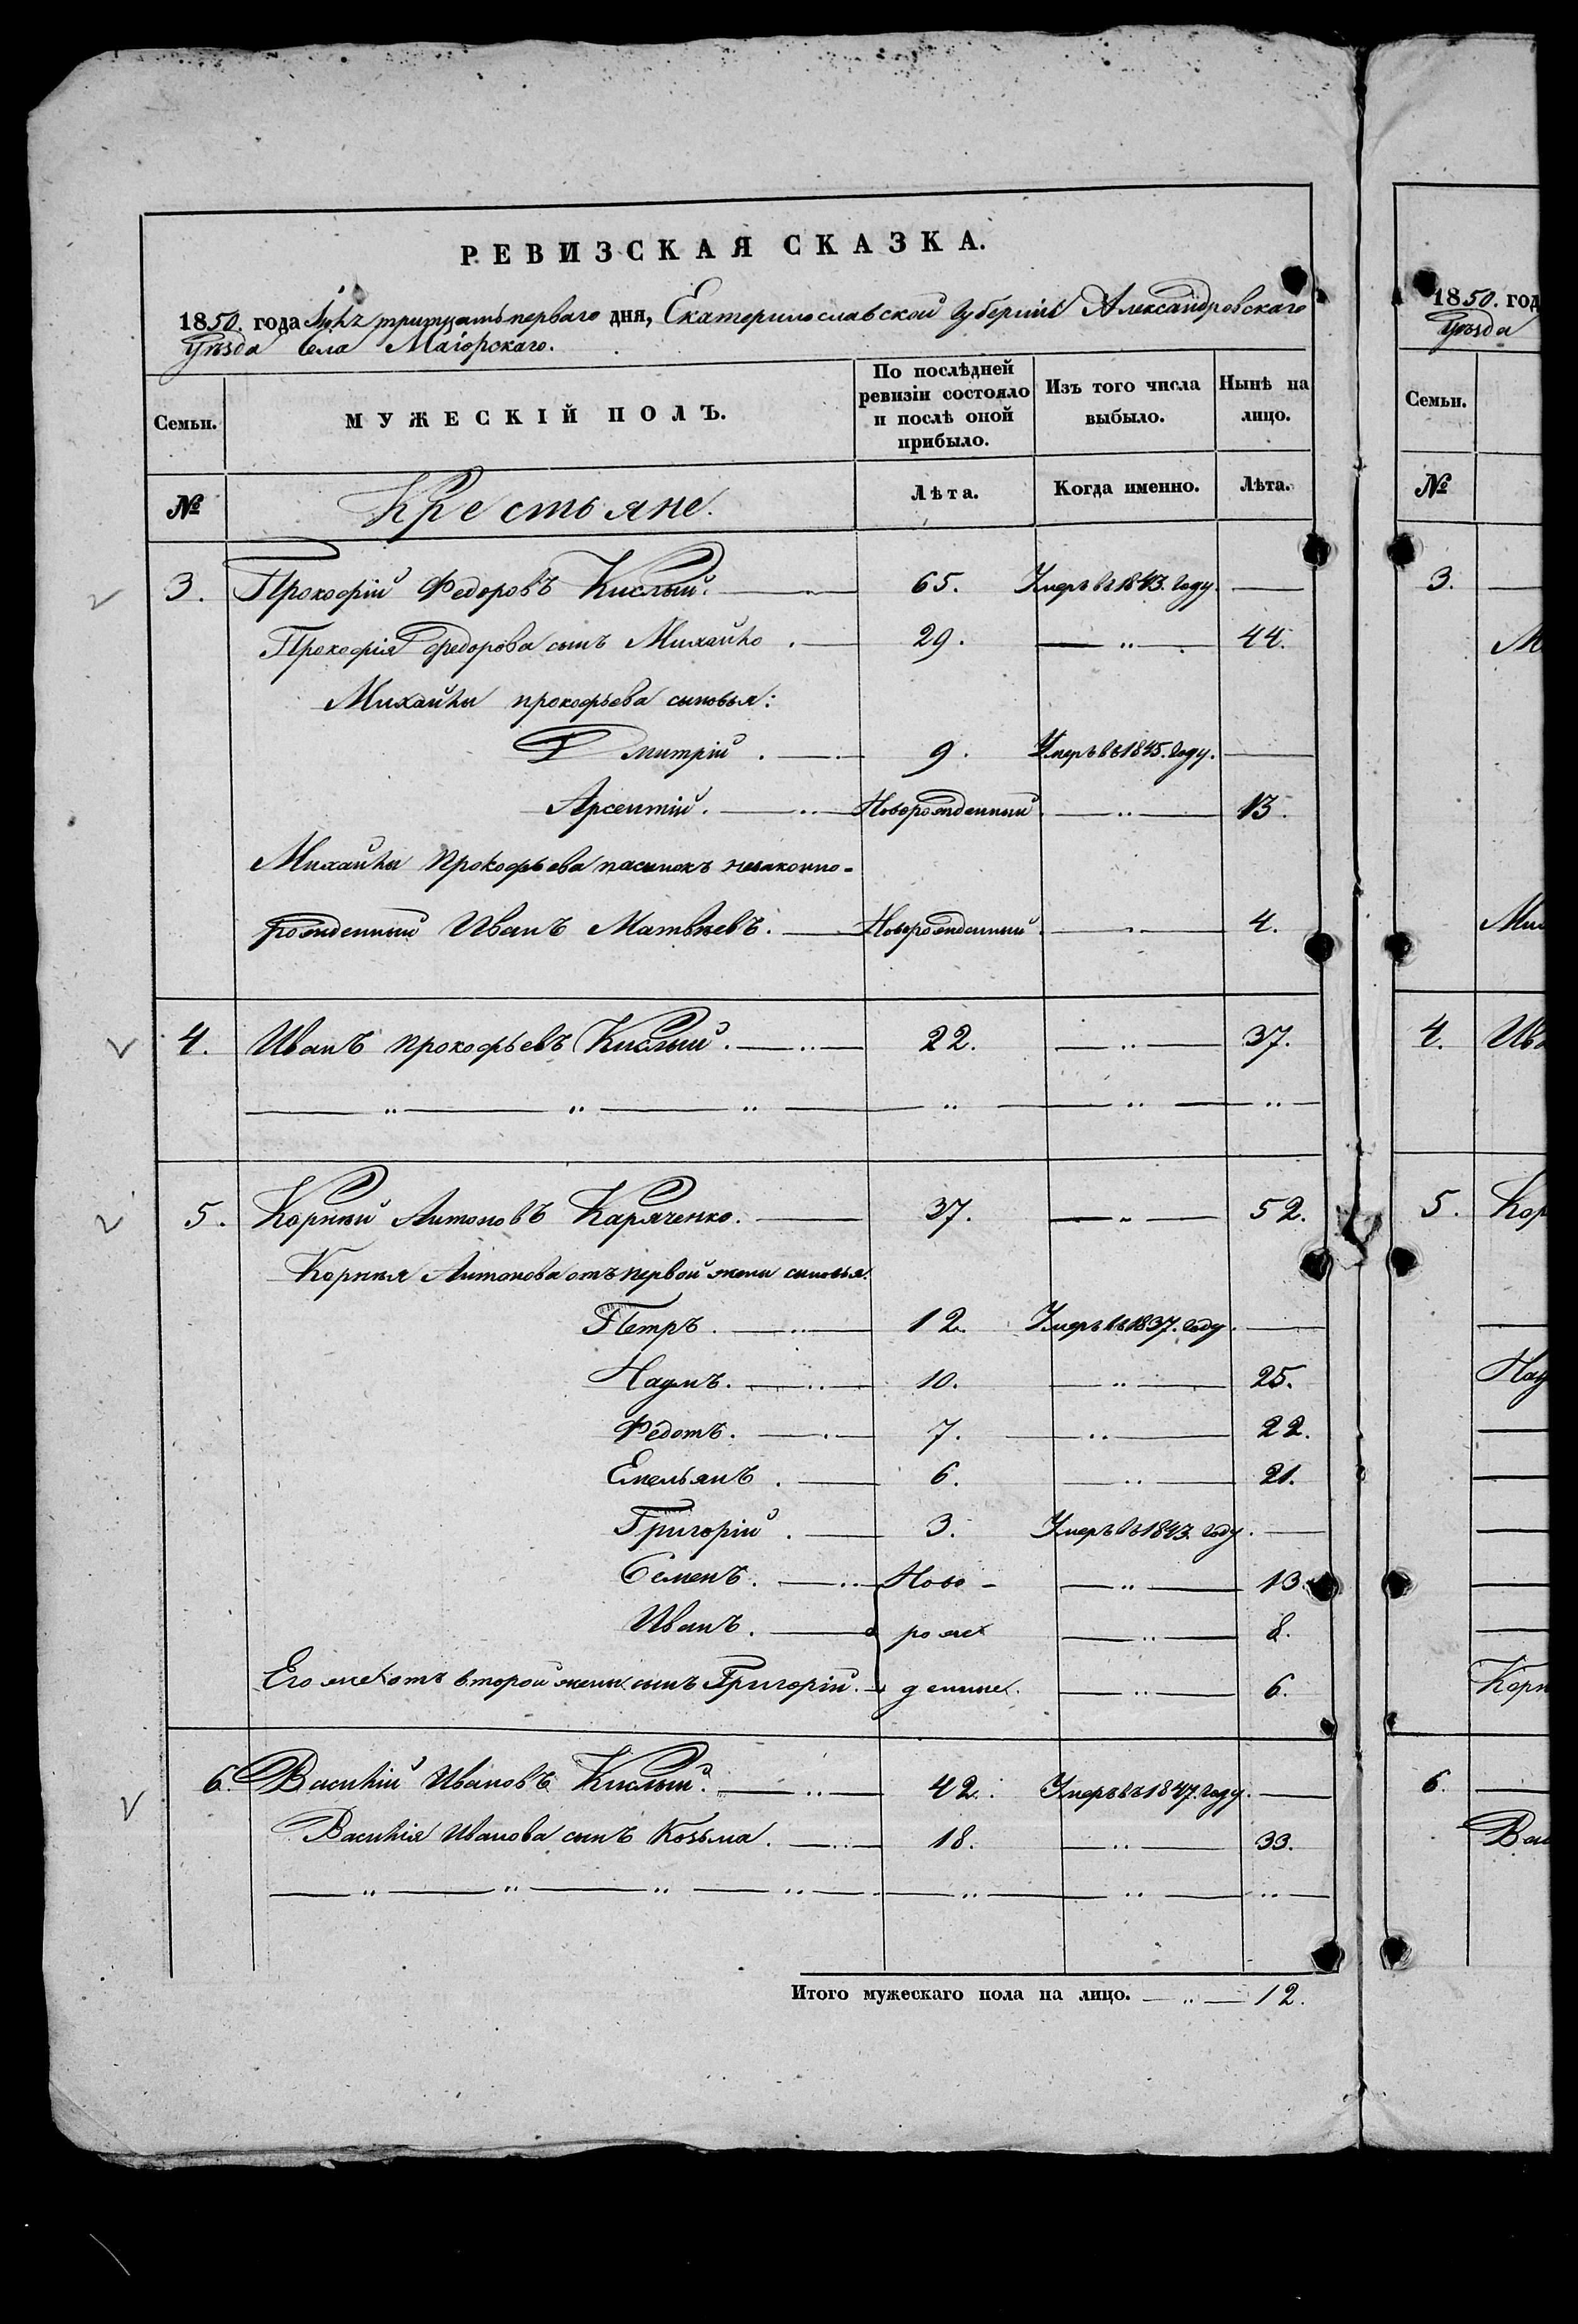 РЕВИЗСКАЯ СКАЗКА.
1850. года Іюля тритцать перваго дня, Екатеринославской Губерніи Александровскаго
Уѣзда Села Маіорскаго.
Семьи. МУЖЕСКІЙ ПОЛЪ. По послѣдней ревизіи состояло и послѣ оной прибыло. Изъ того числа выбыло. Нынѣ на лицо.
№ Крестьяне. Лѣта. Когда именно. Лѣта.
3. Прокофій Федоровъ Кислый. 65. Умеръ въ 1843. году. —
Прокофія Федорова сынъ Михайло . 29. — " — 44.
Михайлы прокофьева сыновья:
Дмитрій . 9. Умеръ въ 1845. году. —
Арсентій. Новорожденный. — " — 13.
Михайлы Прокофьева пасынокъ незаконно-
рожденный Иванъ Матвѣевъ. Новорожденный. — " — 4.
4. Иванъ прокофьевъ Кислый. 22. — " — 37.
— " — " — " — " — " — " —
5. Корнѣй Антоновъ Каряченко. 37. — " — 52.
Корнѣя Антонова отъ первой жены сыновья:
Петръ. 12. Умеръ въ 1837. году. —
Наумъ. 10. — " — 25.
Федотъ. 7. — " — 22.
Емельянъ . 6. — " — 21.
Григорій . 3. Умеръ въ 1843. году. —
Семенъ. Ново- — " — 13.
Иванъ. рож — " — 8.
Его же отъ второй жены сынъ Григорій. денные. — " — 6.
6. Василій Ивановъ Кислый. 42. Умеръ въ 1847. году. —
Василія Иванова сынъ Козьма. 18. — " — 33.
— " — " — " — " — " — " — " —
Итого мужескаго пола на лицо. — " — 12.
1850. год
Уѣзда
Семьи.
№
3.
М
Мих
4. Ив
5. Кор
Нау
Корн
6.
Вас